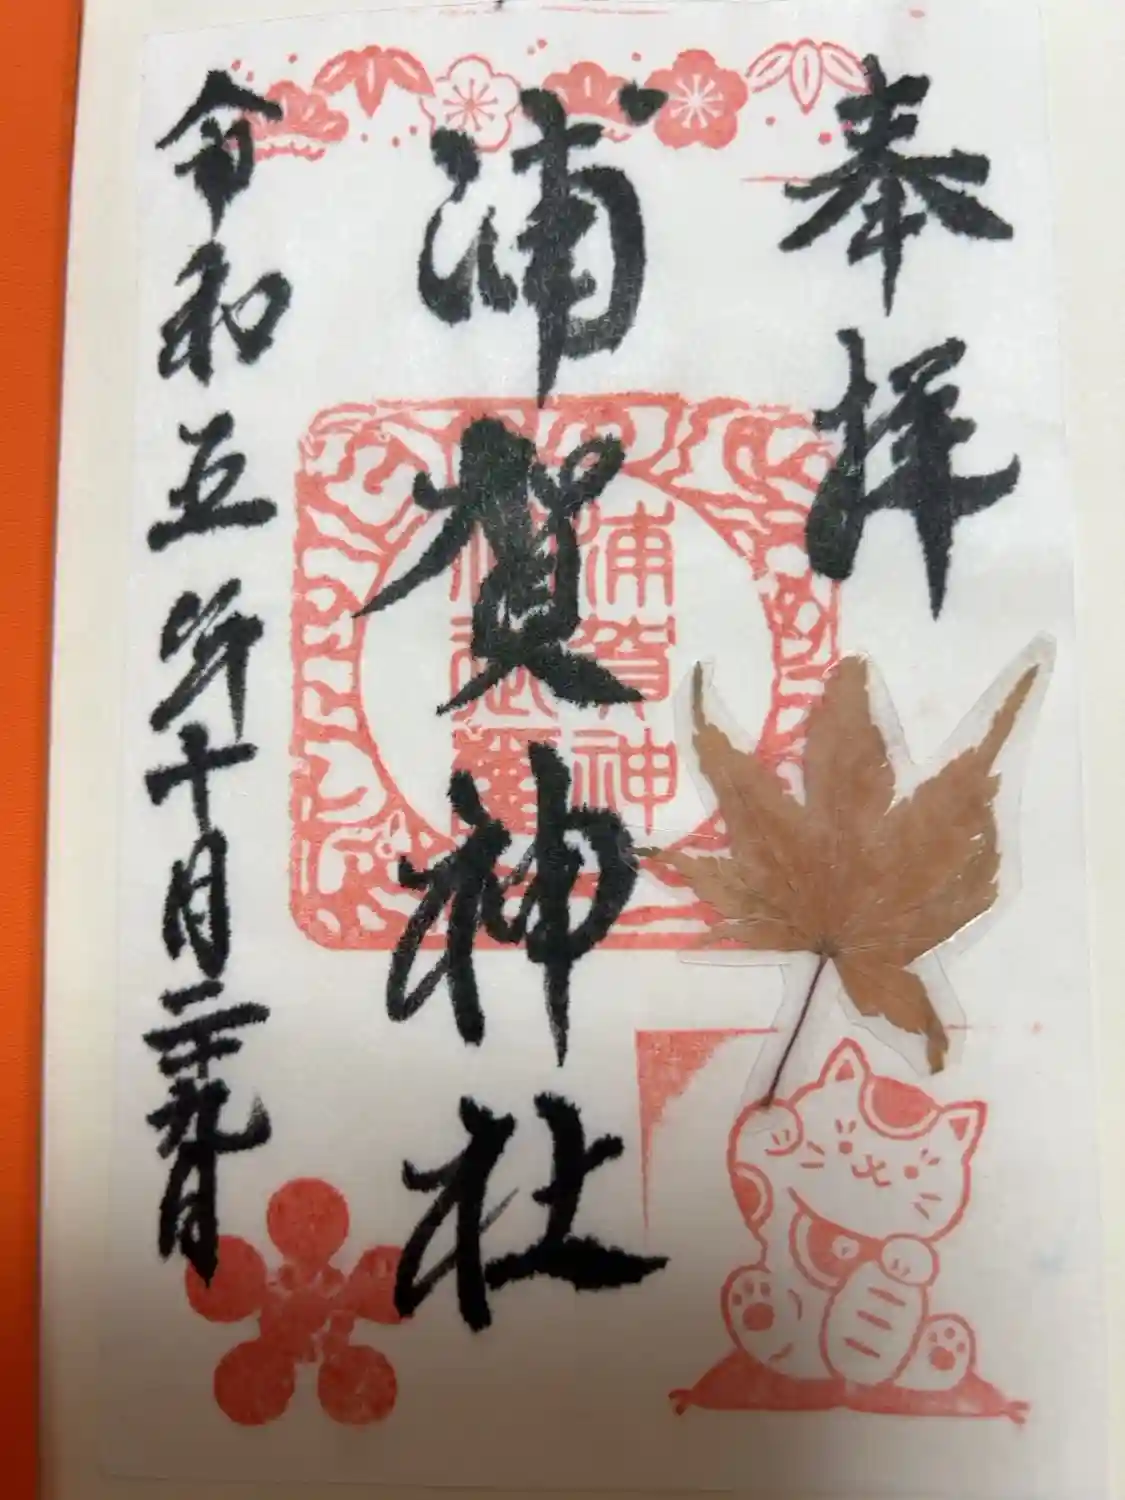 奉拝
浦賀神社
浦賀神
令和五年十月二十九日